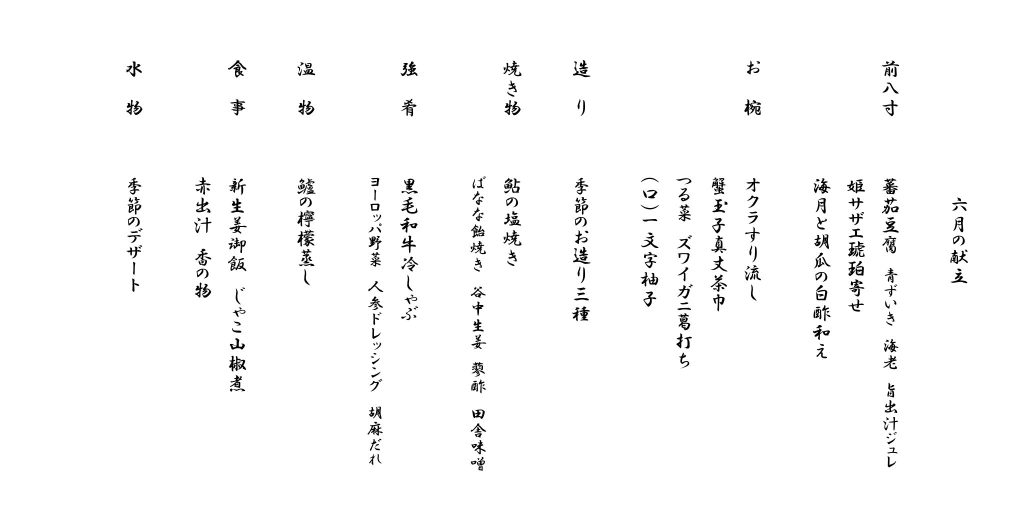 六月の献立
前八寸 蕃茄豆腐 青ずいき 海老 旨出汁ジュレ
姫サザエ琥珀寄せ
海月と胡瓜の白酢和え
お椀 オクラすり流し
蟹玉子真丈茶巾
つる菜 ズワイガニ葛打ち
(口)一文字柚子
造り 季節のお造り三種
焼き物 鮎の塩焼き
ばなな飴焼き 谷中生姜 蓼酢 田舎味噌
強肴 黒毛和牛冷しゃぶ
ヨーロッパ野菜 人参ドレッシング 胡麻だれ
温物 鱸の檸檬蒸し
食事 新生姜御飯 じゃこ山椒煮
赤出汁 香の物
水物 季節のデザート